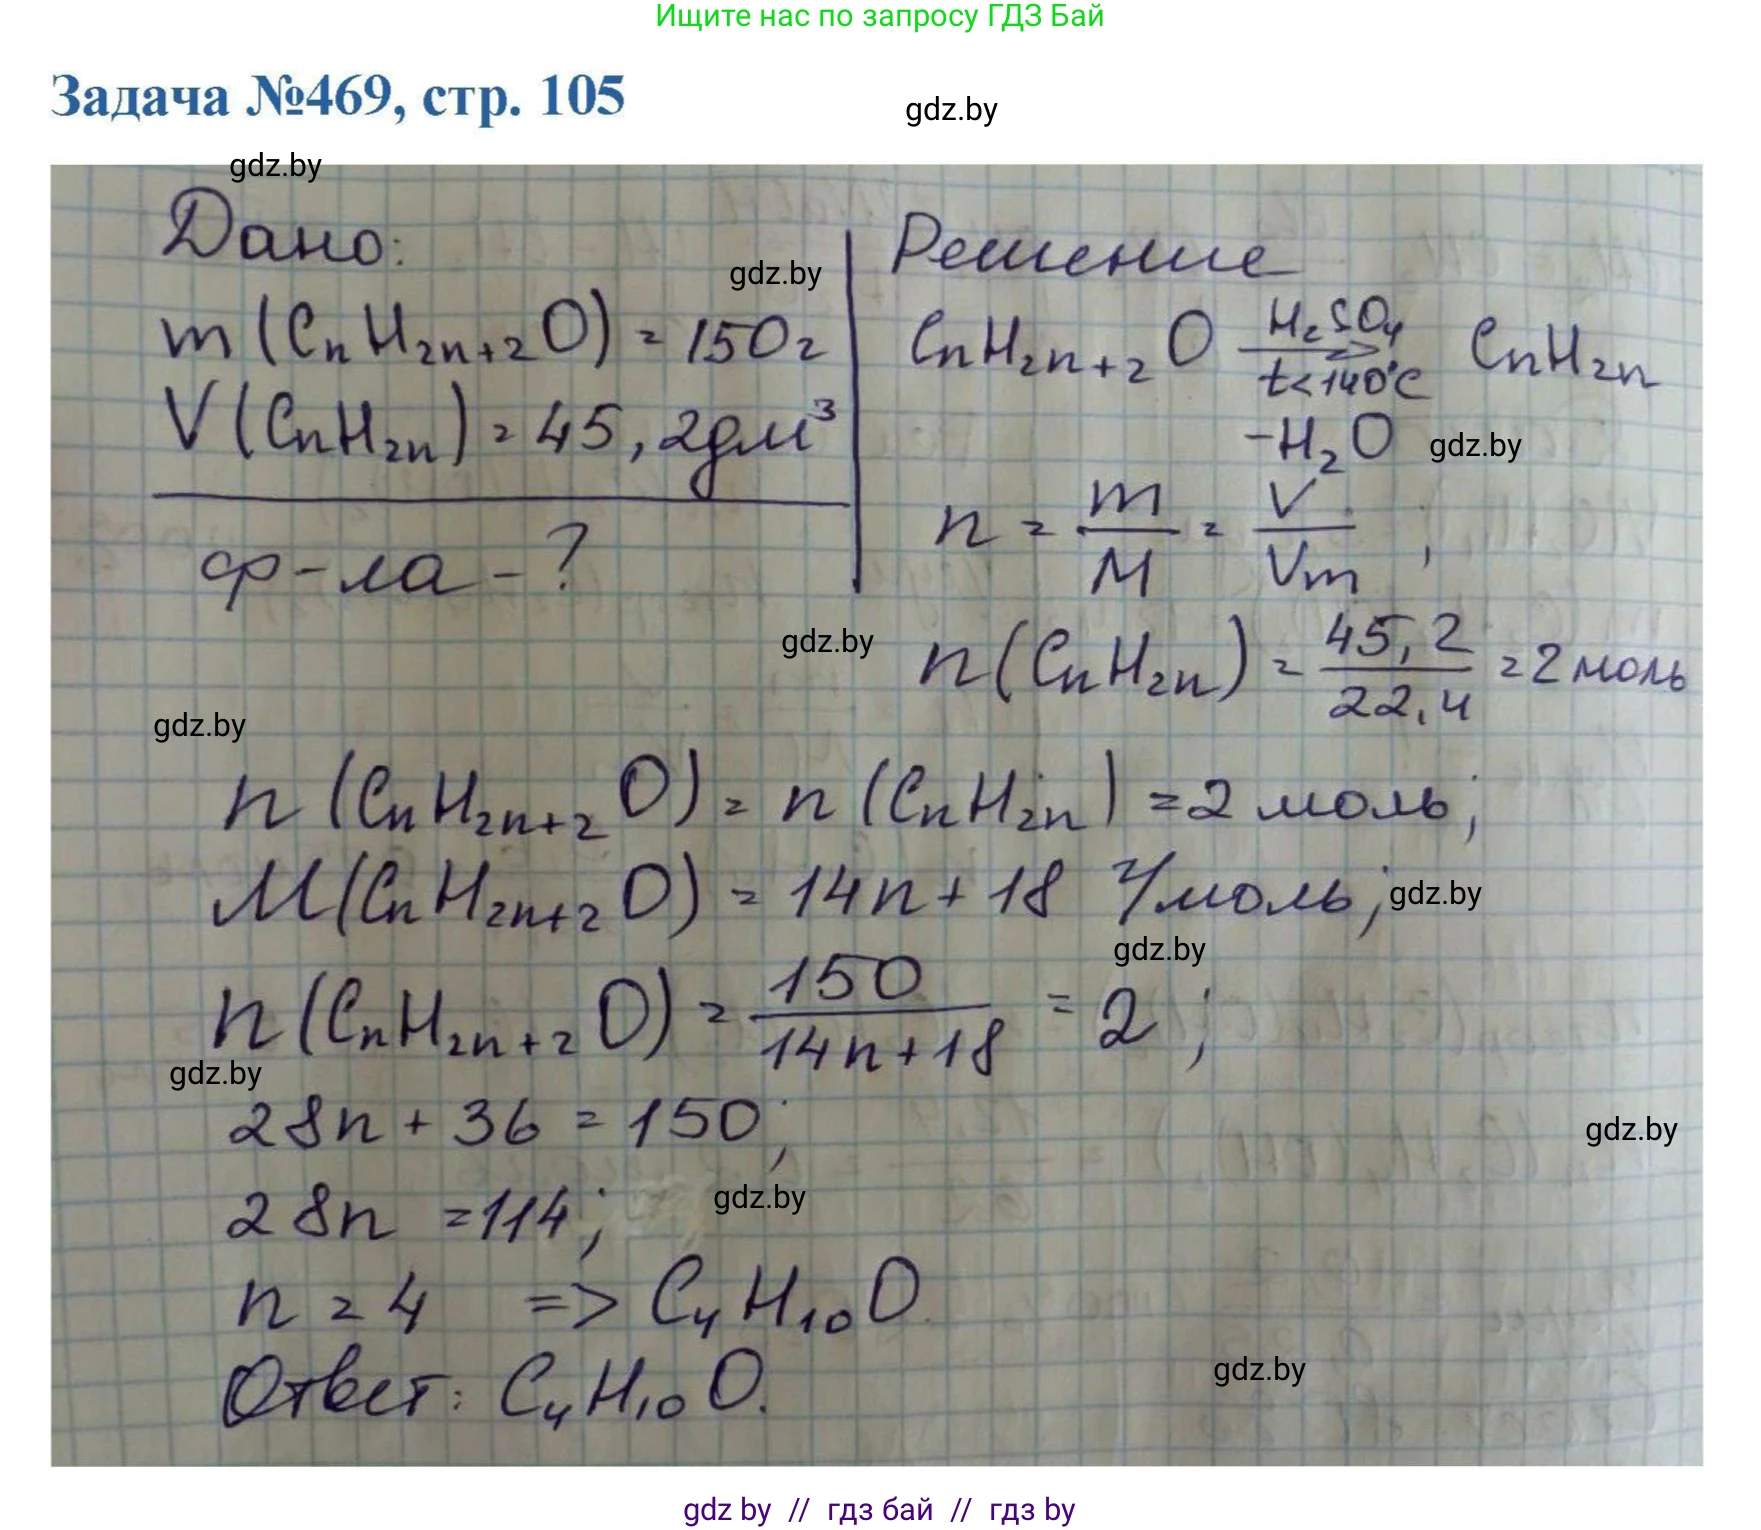 Ищите нас по запросу ГДЗ Бай
Задача №469, стр. 105
gdz.by
gdz.by
Дано:
Решение
gdz.by
m (CnH2n+2O) = 150г
CnH2n+2O H2SO4 t<140°C CnH2n
V (CnH2n) = 45,2дм³
-H2O
gdz.by
n = m/M = V/Vm ;
ф-ла - ?
gdz.by
n(CnH2n) = 45,2/22,4 = 2 моль
gdz.by
n (CnH2n+2O) = n (CnH2n) = 2 моль;
M(CnH2n+2O) = 14n + 18 г/моль;
gdz.by
gdz.by
n(CnH2n+2O) = 150/14n+18 = 2 ;
gdz.by
28n + 36 = 150;
gdz.by
28n = 114;
gdz.by
n = 4 => C4H10O.
Ответ: C4H10O.
gdz.by
gdz by // гдз бай // гдз by